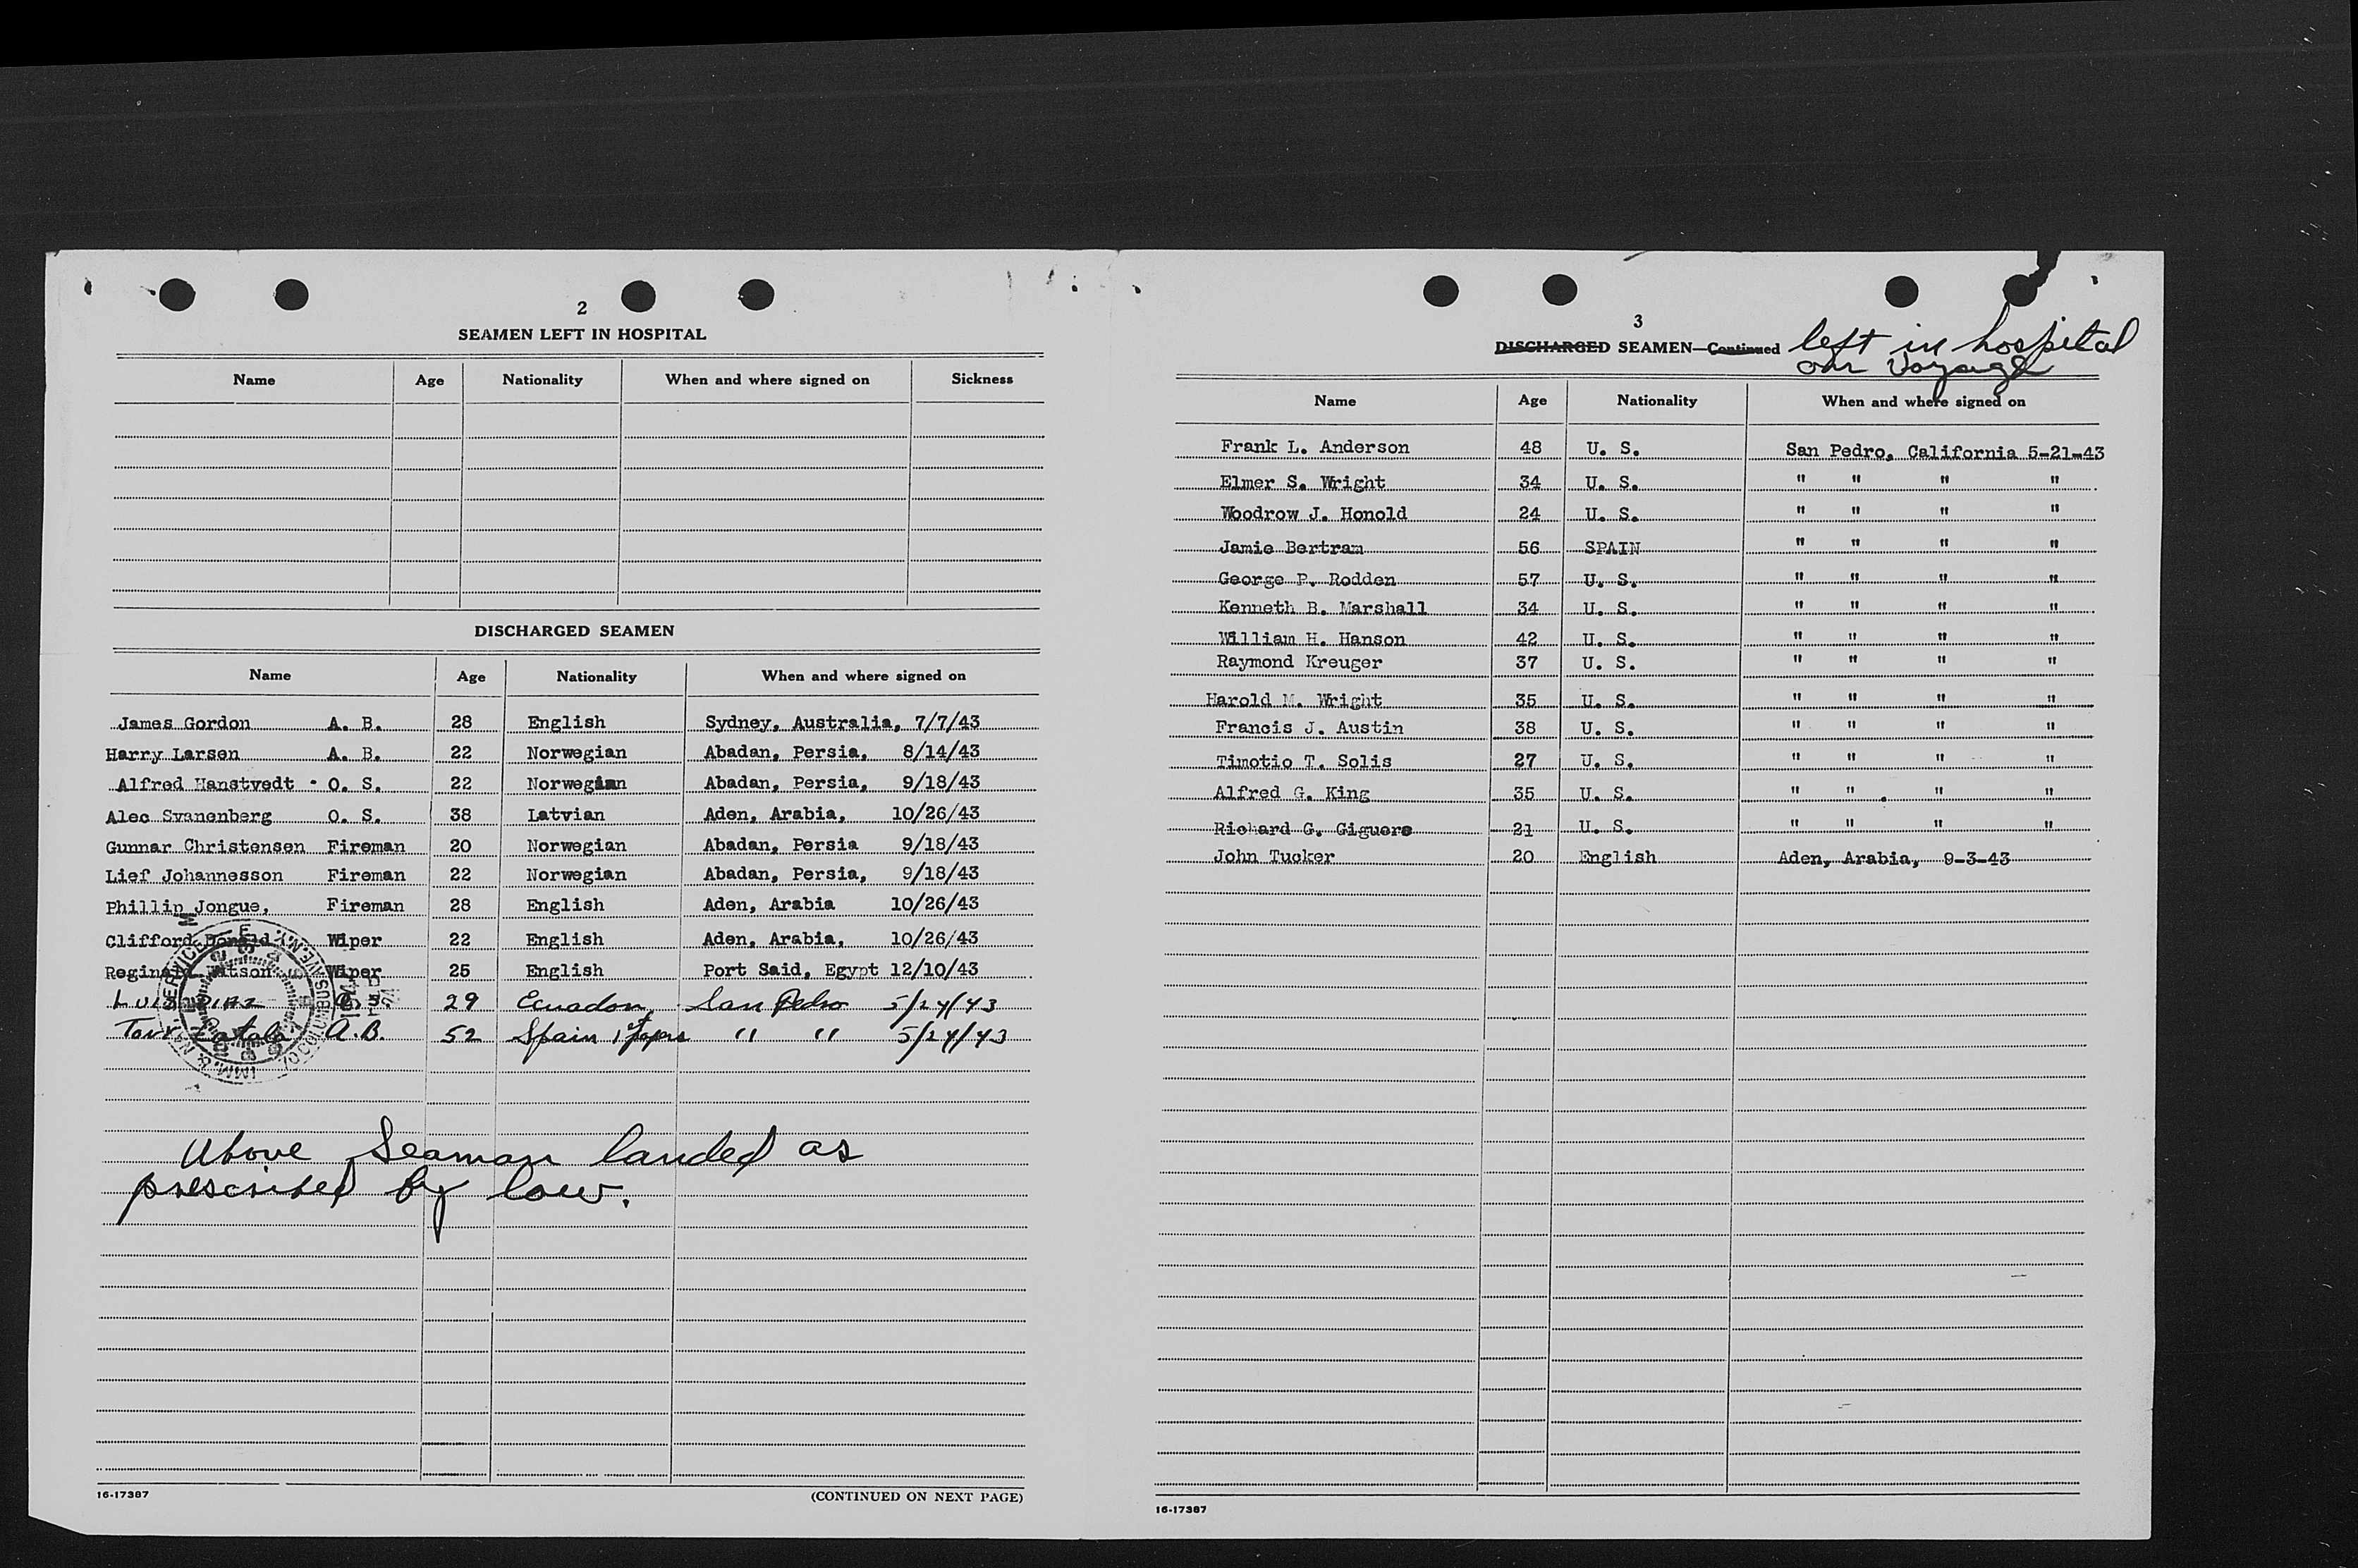 2
SEAMEN LEFT IN HOSPITAL
Name Age Nationality When and where signed on Sickness
DISCHARGED SEAMEN
Name Age Nationality When and where signed on
James Gordon A. B. 28 English Sydney, Australia, 7/7/43
Harry Larsen A. B. 22 Norwegian Abadan, Persia, 8/14/43
Alfred Hanstvedt - O. S. 22 Norwegian Abadan, Persia, 9/18/43
Alec Svanenberg O. S. 38 Latvian Aden, Arabia, 10/26/43
Gunnar Christensen Fireman 20 Norwegian Abadan, Persia 9/18/43
Lief Johannesson Fireman 22 Norwegian Abadan, Persia, 9/18/43
Phillip Jongue, Fireman 28 English Aden, Arabia 10/26/43
Clifford Donald Wiper 22 English Aden, Arabia, 10/26/43
Reginald Watson Wiper 25 English Port Said, Egypt 12/10/43
Luis Diaz 29 Ecuador San Pedro 5/24/43
A.B. 52 Spain 1st papers " " 5/24/43
IMM. & NAT. SERVICE
COLUMBUS AVE. N.Y.
Above Seaman landed as
prescribed by law.
16-17387
(CONTINUED ON NEXT PAGE)
3
DISCHARGED SEAMEN—Continued left in hospital
our Voyage
Name Age Nationality When and where signed on
Frank L. Anderson 48 U. S. San Pedro, California 5-21-43
Elmer S. Wright 34 U. S. " " " "
Woodrow J. Honold 24 U. S. " " " "
Jamie Bertram 56 SPAIN " " " "
George P. Rodden 57 U. S. " " " "
Kenneth B. Marshall 34 U. S. " " " "
William H. Hanson 42 U. S. " " " "
Raymond Kreuger 37 U. S. " " " "
Harold M. Wright 35 U. S. " " " "
Francis J. Austin 38 U. S. " " " "
Timotio T. Solis 27 U. S. " " " "
Alfred G. King 35 U. S. " " " "
Richard G. Giguere 21 U. S. " " " "
John Tucker 20 English Aden, Arabia, 9-3-43
16-17387